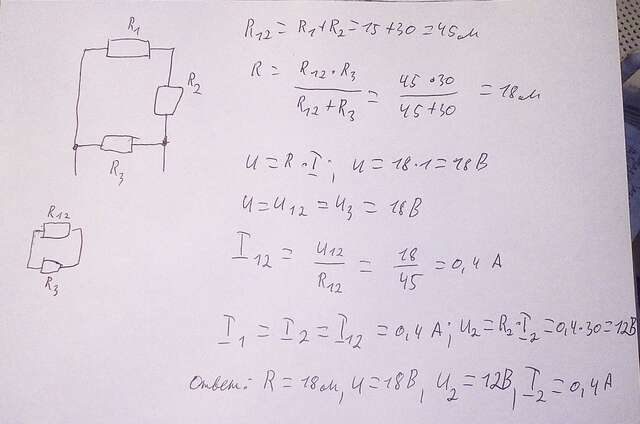 R1
R2
R3
R12
R3
R12 = R1 + R2 = 15 + 30 = 45 ом
R = R12 · R3 / R12 + R3 = 45 · 30 / 45 + 30 = 18 ом
U = R · I; U = 18 · 1 = 18 В
U = U12 = U3 = 18 В
I12 = U12 / R12 = 18 / 45 = 0,4 А
I1 = I2 = I12 = 0,4 А; U2 = R2 · I2 = 0,4 · 30 = 12 В
Ответ: R = 18 ом, U = 18 В, U2 = 12 В, I2 = 0,4 А